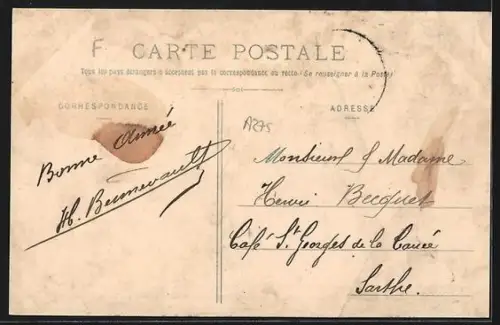 F
CARTE POSTALE
Tous les pays étrangers n'acceptent pas la correspondance au recto (Se renseigner à la Poste)
CORRESPONDANCE
ADRESSE
A275
Bonne Année
H.
Monsieur & Madame
Henri Becquet
Café St Georges de la Couée
Sarthe.